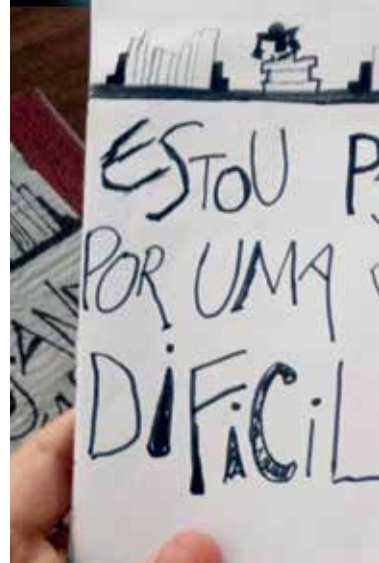 ESTOU
POR UMA
DiFiCiL